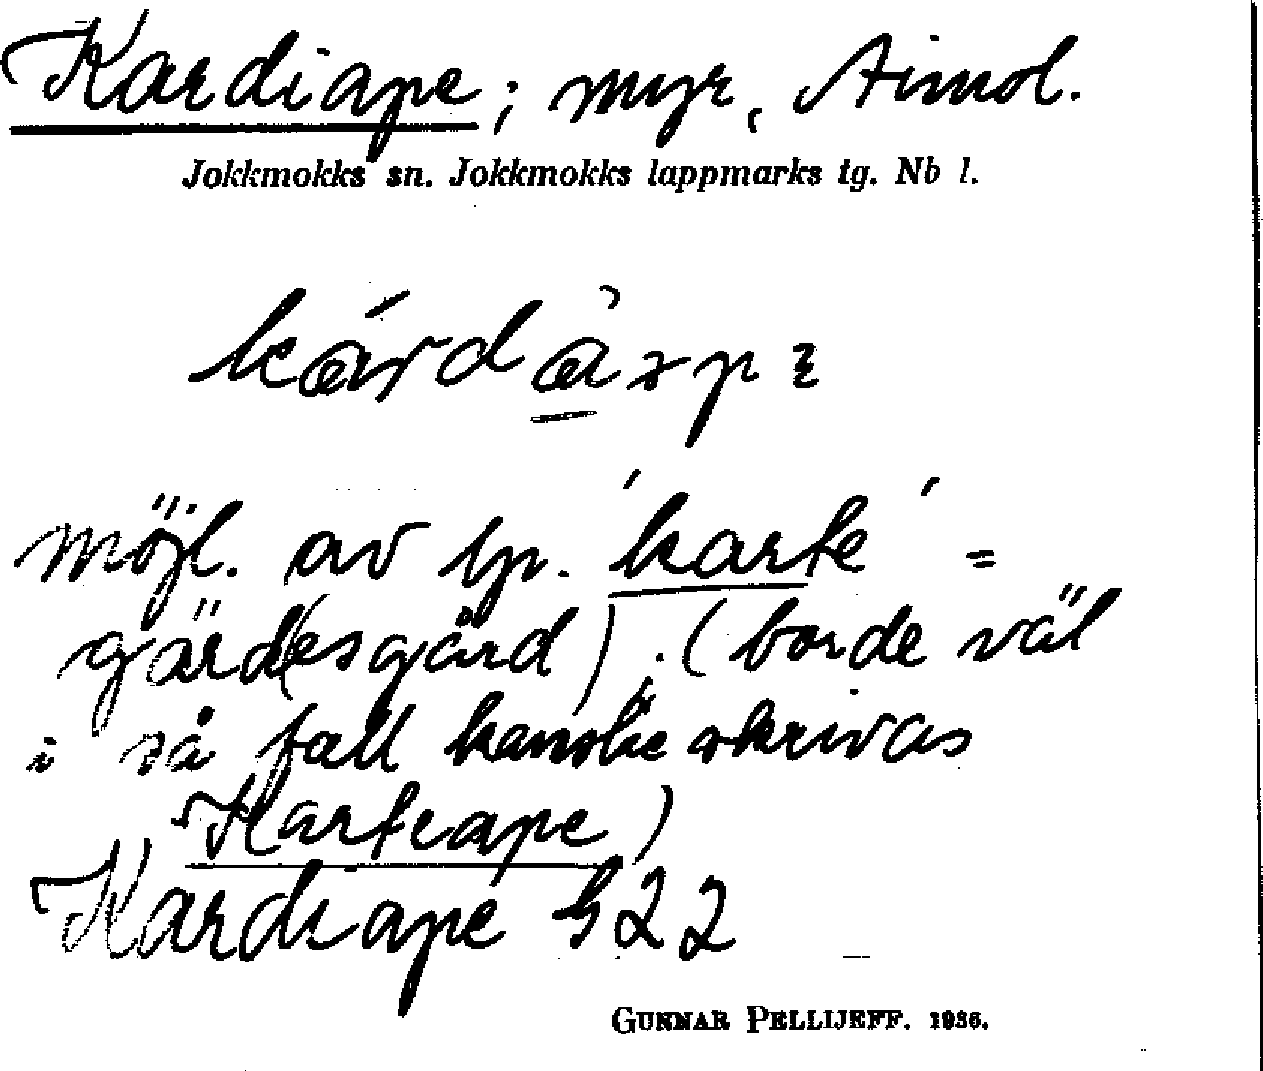 Kardiape; myr, Aimol.
Jokkmokks sn. Jokkmokks lappmarks tg. Nb l.
möjl. av lp. 'karte' =
gärd(esgård). (borde väl
i så fall kanske skrivas
Karteape)
Kardiape h22
GUNNAR PELLIJEFF. 1936.